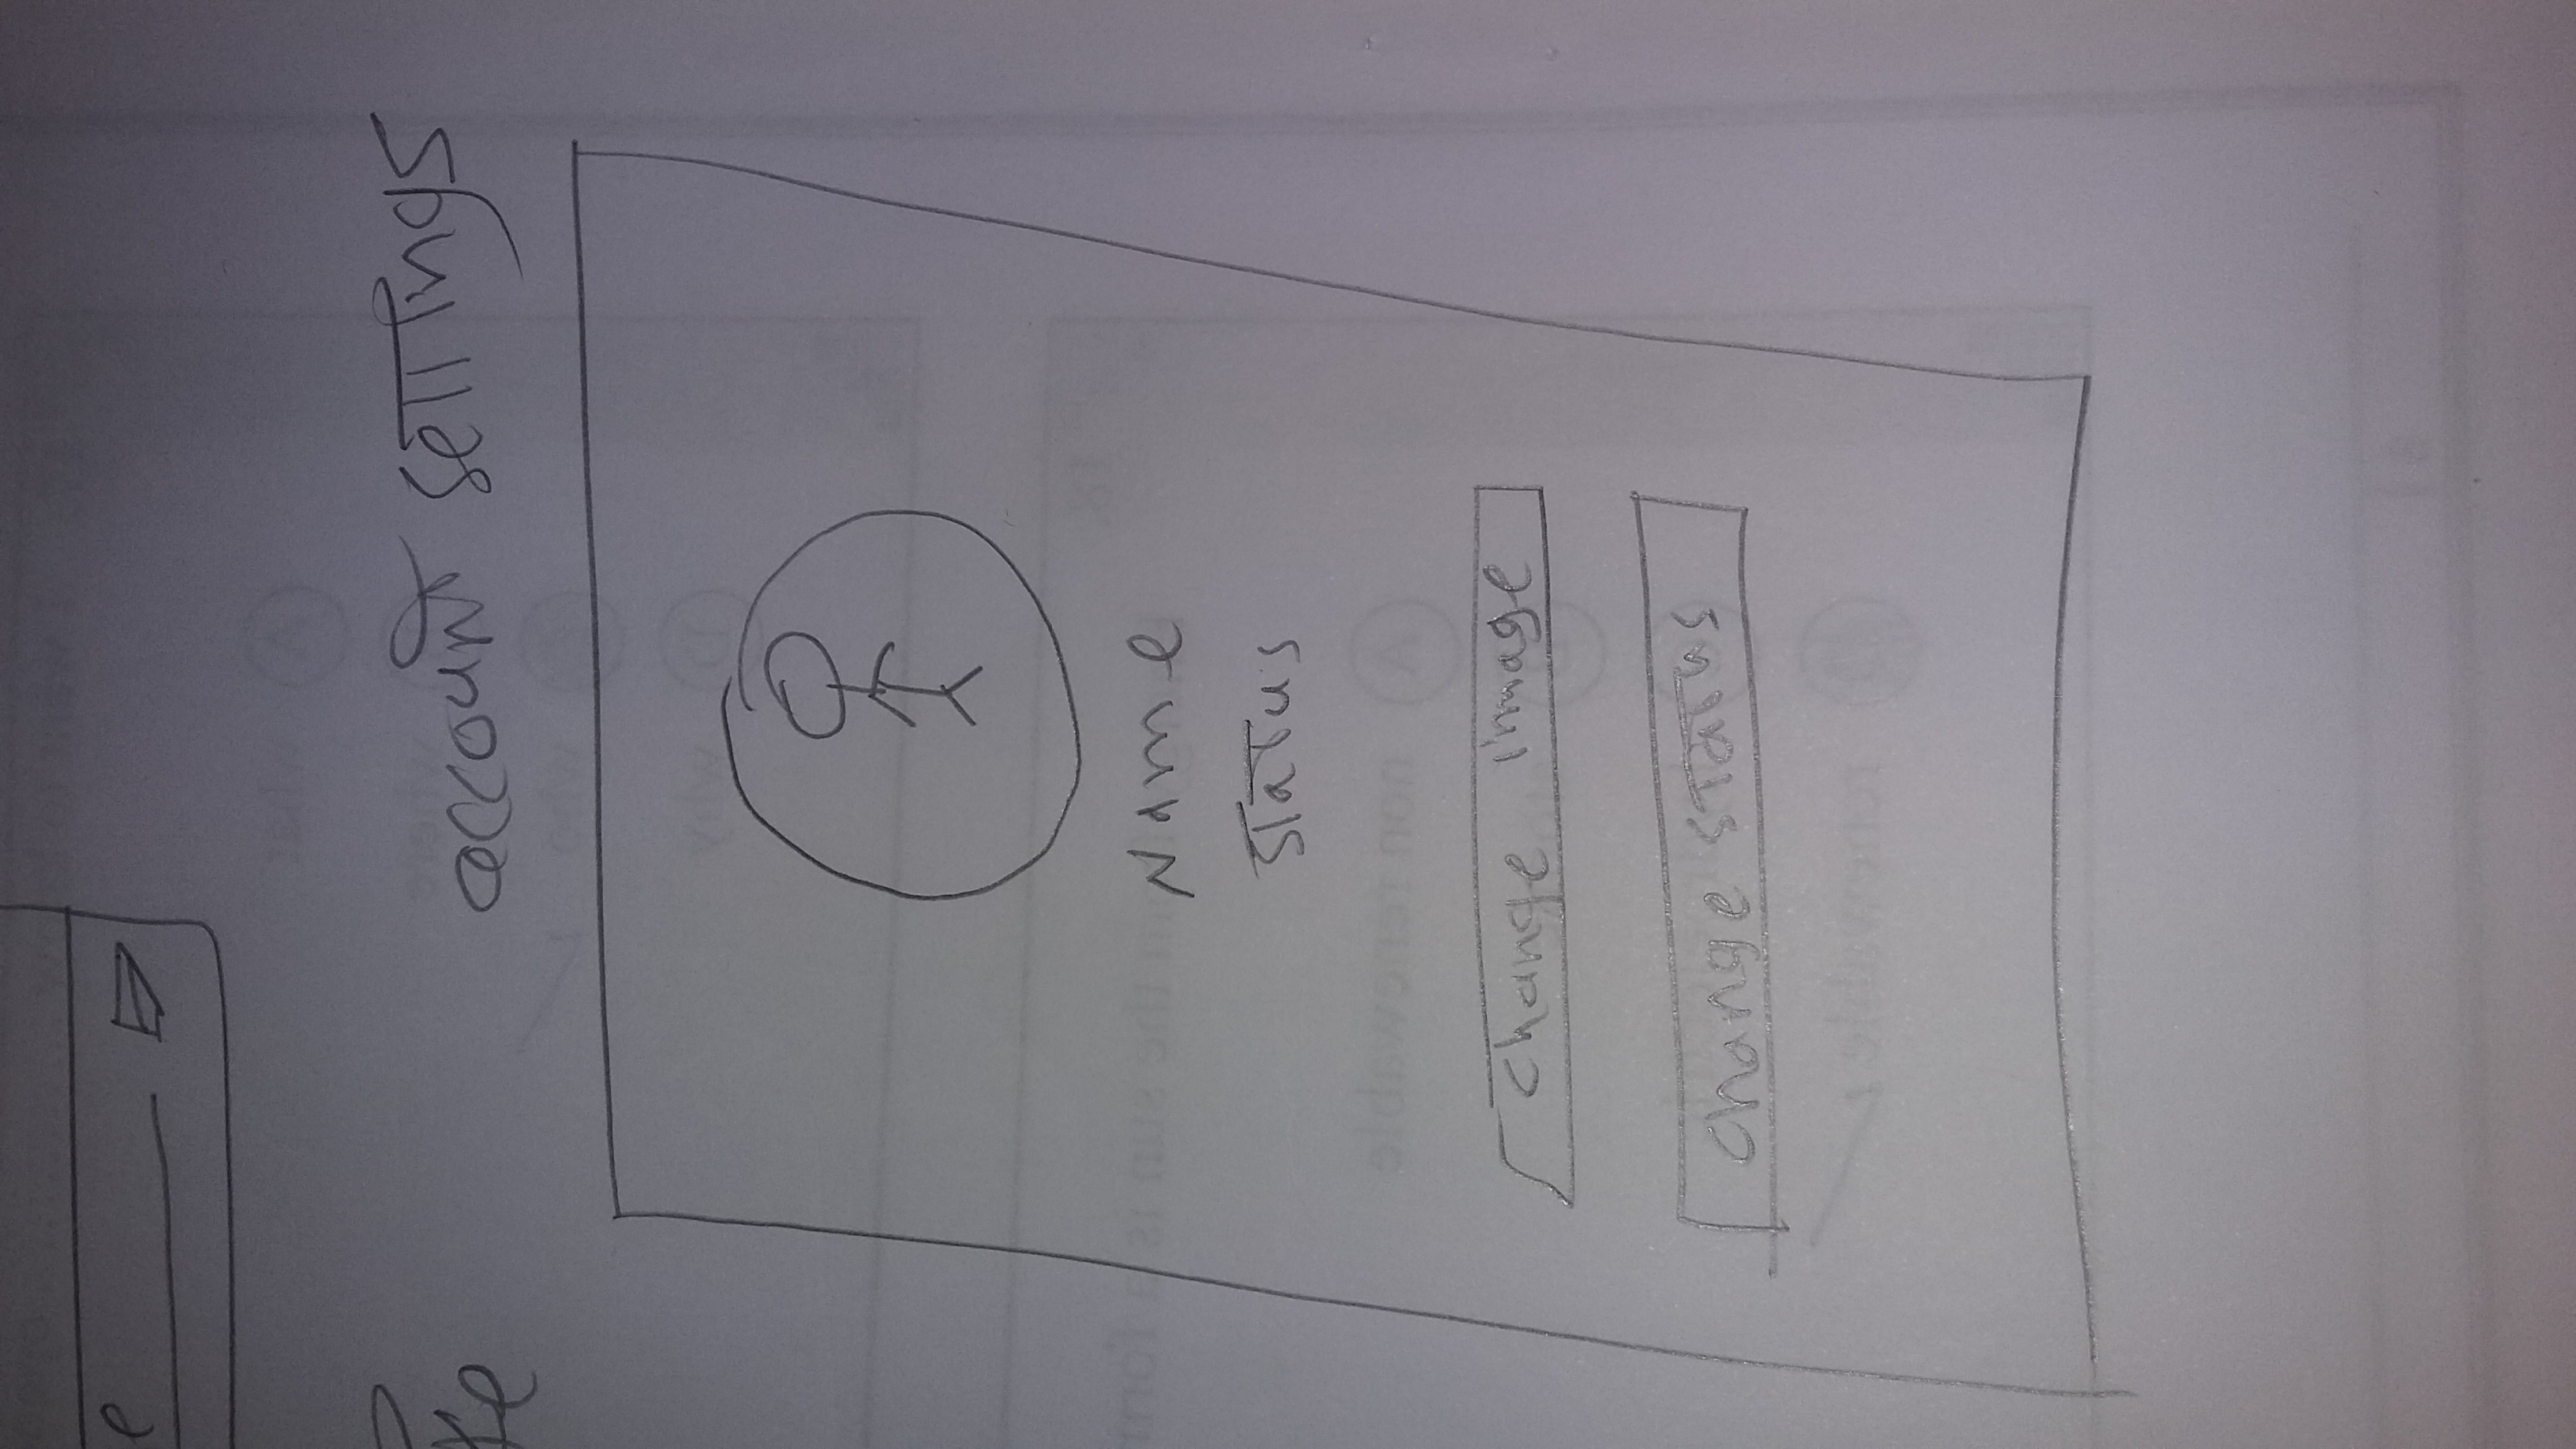 account settings
Name
status
change image
change status